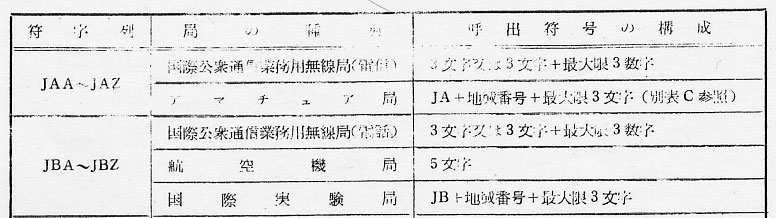 符字列 局の種別 呼出符号の構成
JAA～JAZ 国際公衆通信業務用無線局(電信) 3文字又は3文字+最大限3数字
アマチュア局 JA+地域番号+最大限3文字(別表C参照)
JBA～JBZ 国際公衆通信業務用無線局(電話) 3文字又は3文字+最大限3数字
航空機局 5文字
国際実験局 JB+地域番号+最大限3文字